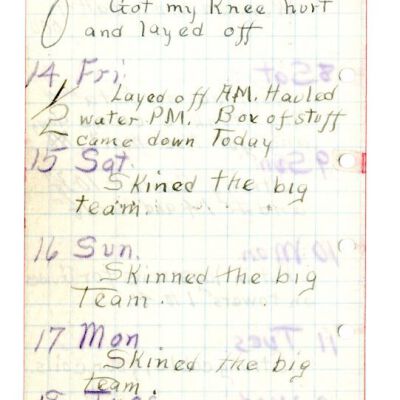 0 Got my Knee hurt
and layed off
14 Fri.
1/2 Layed off AM. Hauled
water PM. Box of stuff
came down Today
15 Sat.
Skined the big
team.
16 Sun.
Skinned the big
Team.
17 Mon.
Skined the big
team.
18 Tues